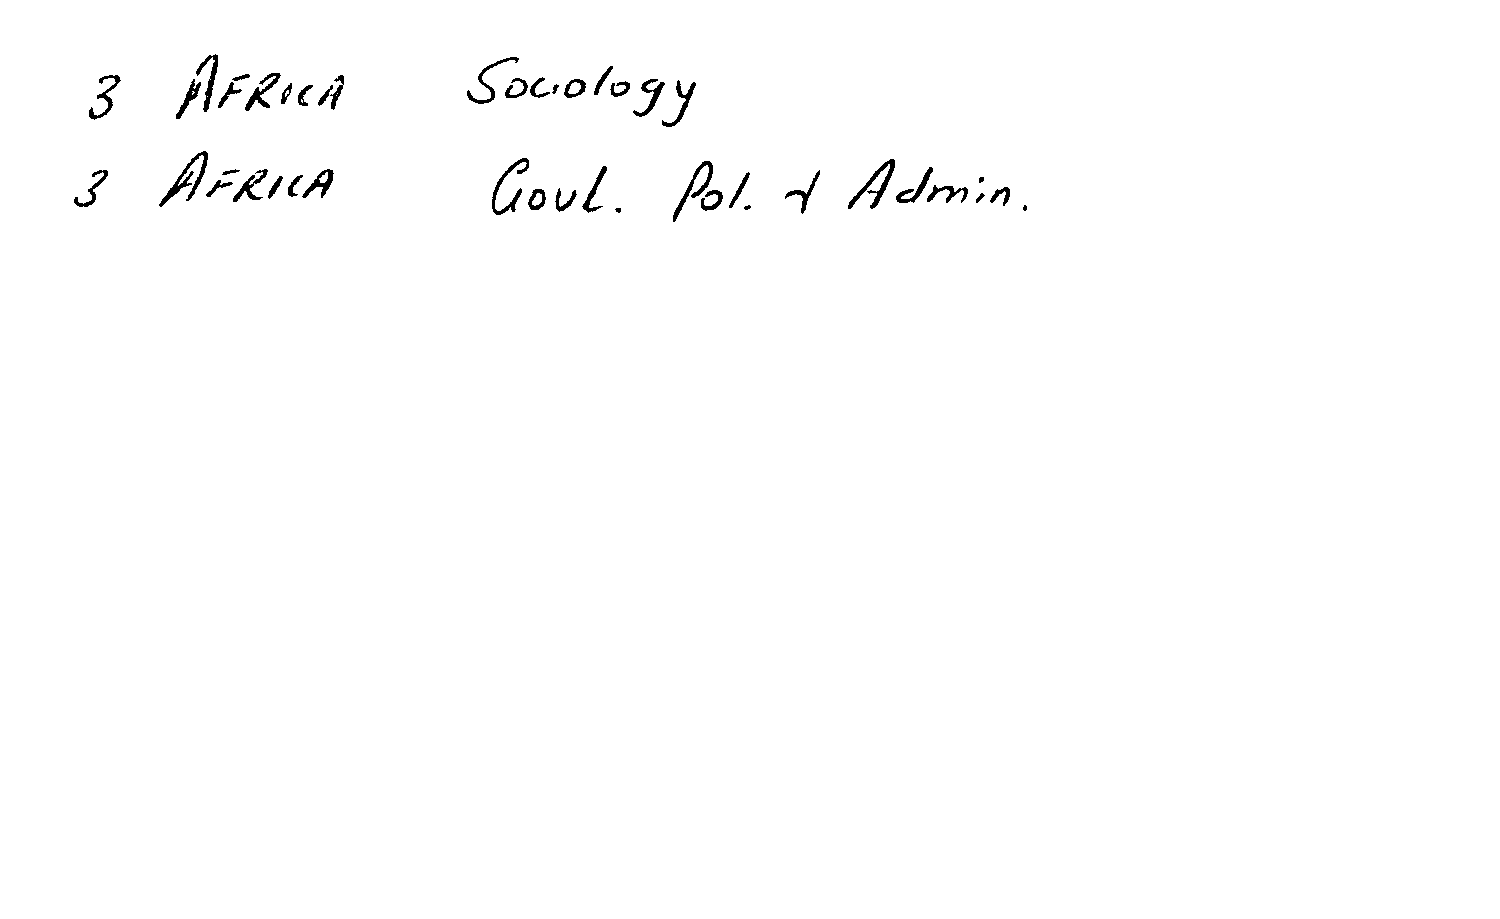 3 AFRICA Sociology
3 AFRICA Govt. Pol. & Admin.